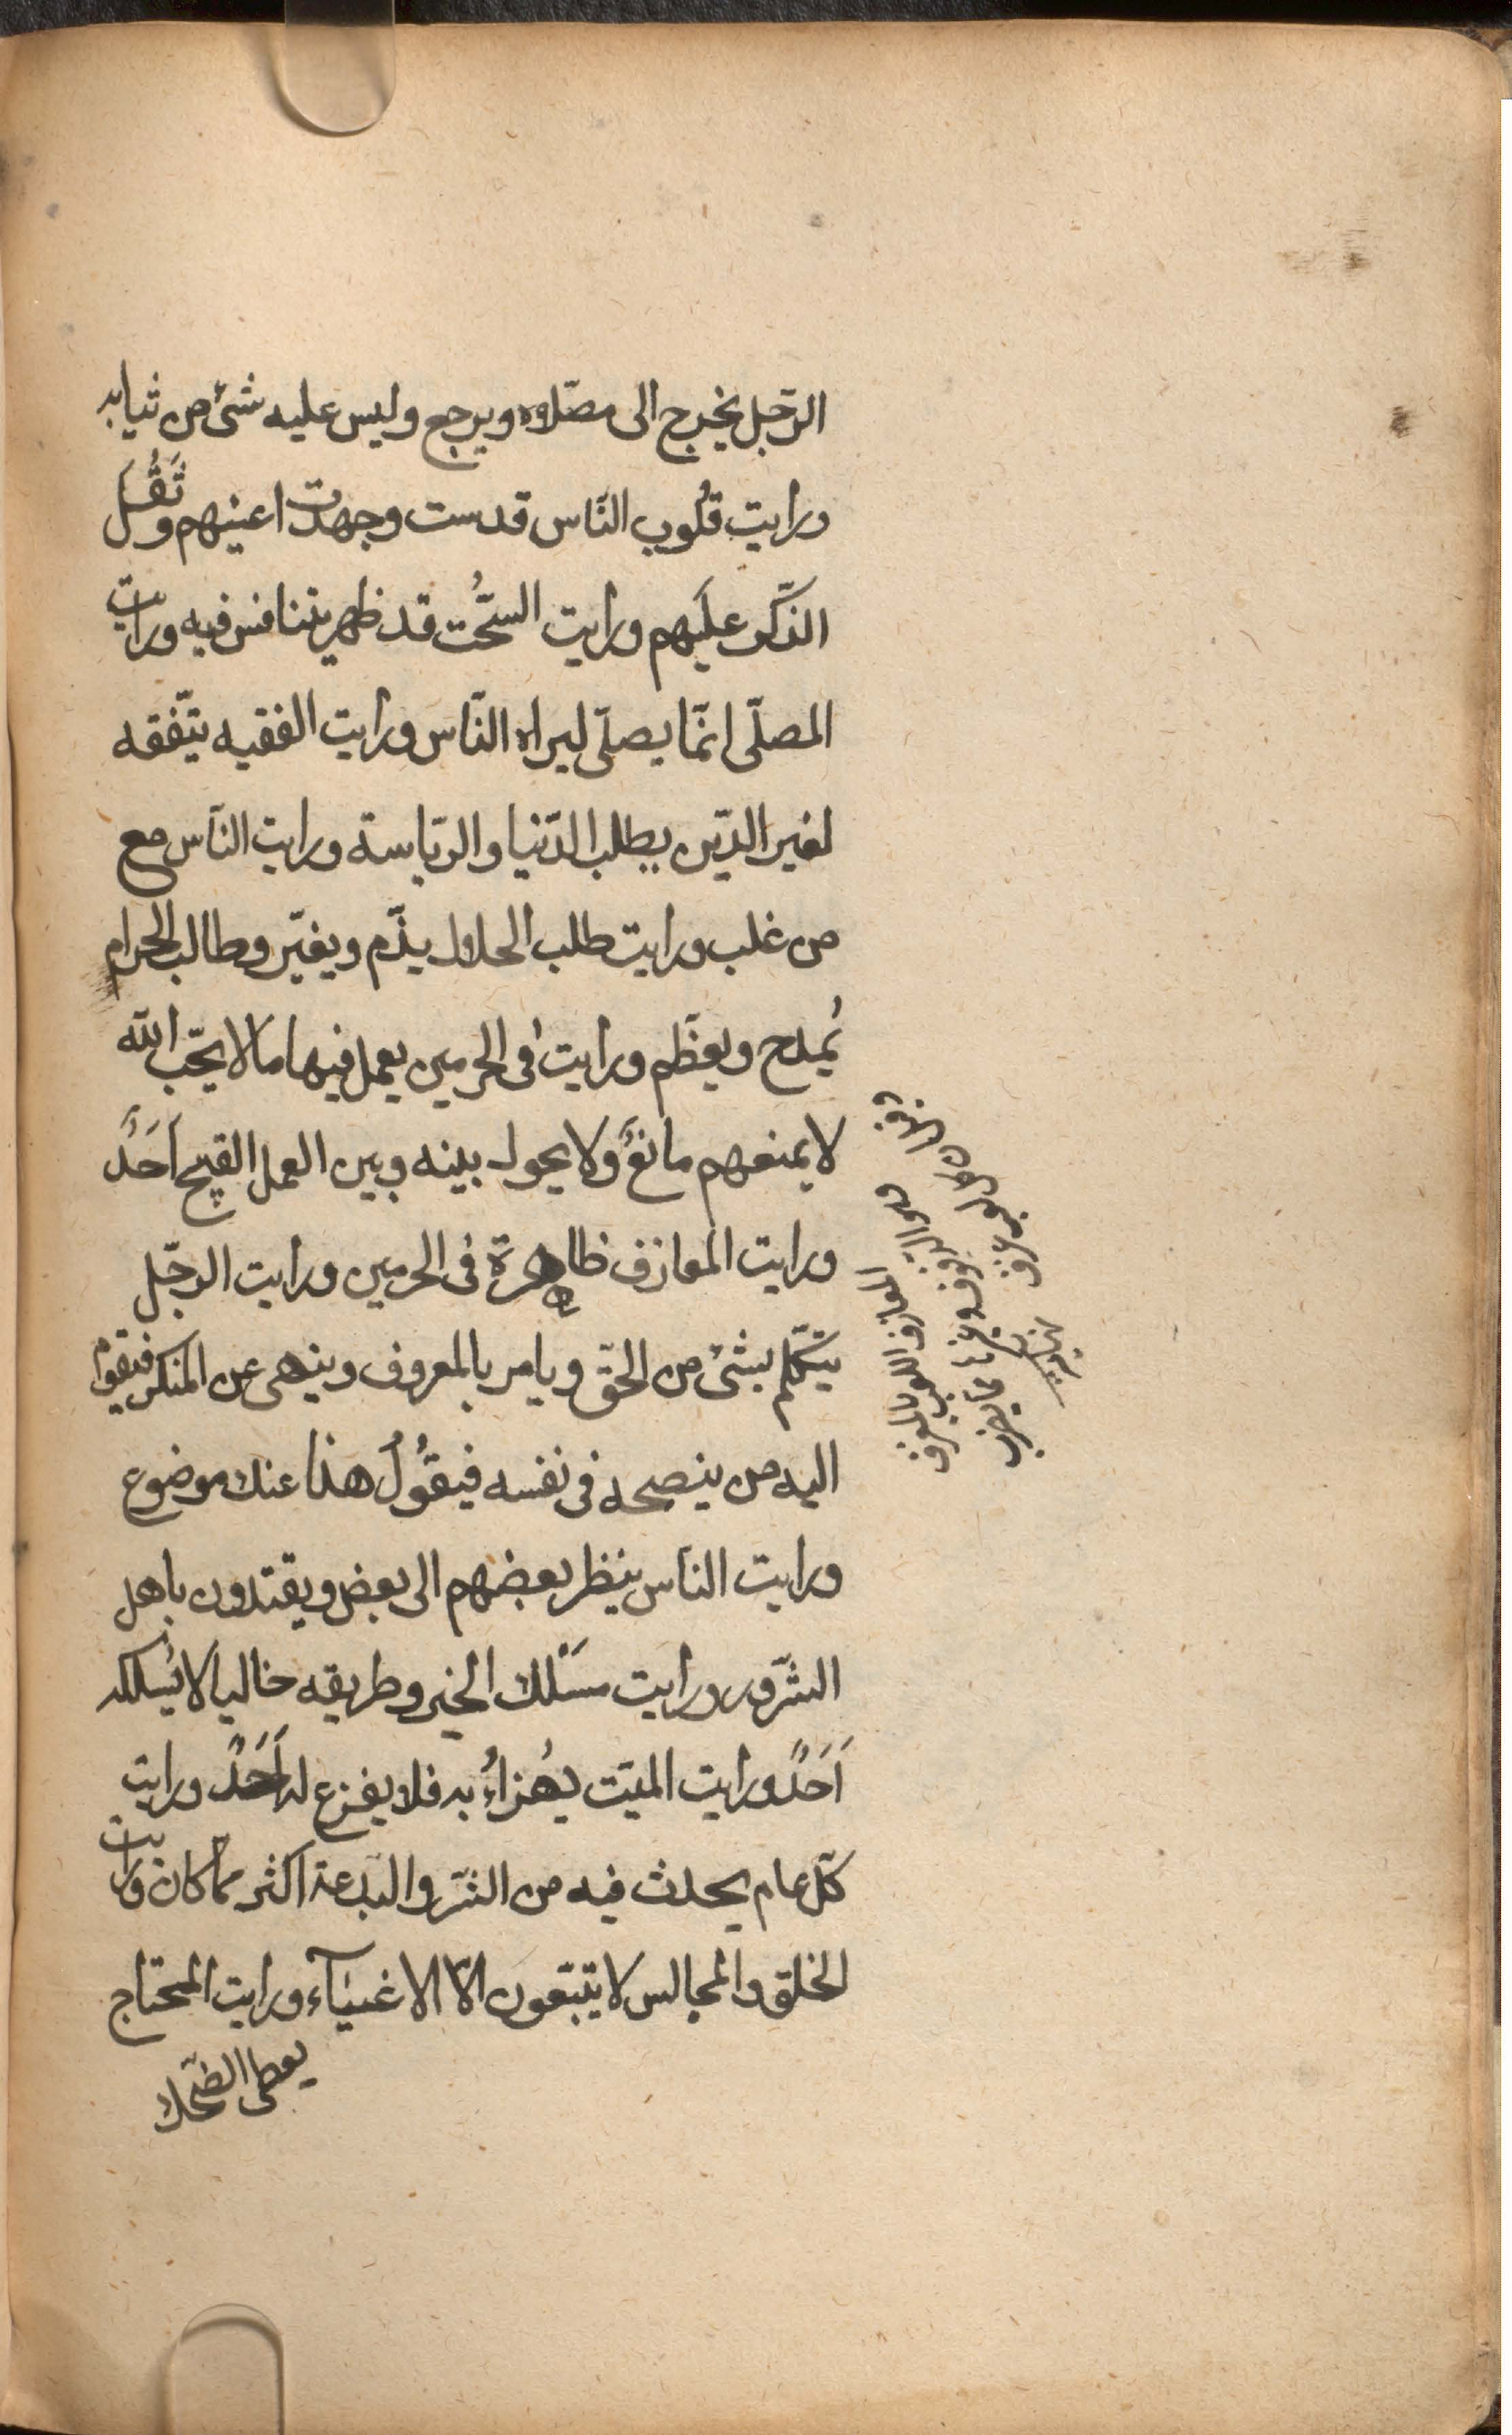 الرّجل يخرج الى مصّلاه ويرجع وليس عليه شئ من ثيابه
ورايت قلُوب النّاس قدست وجهدت اعينهم وثَقُل
الذّكر عليهم ورايت السُّحت قد ظهر يتنافس فيه ورايت
المصلّى انمّا يصلّى ليراه النّاس ورايت الفقيه يتّفقه
لغير الدّين يطلب الدّنيا والرّياسة ورايت النّاس مع
من غلب ورايت طلب الحلال يذّم ويغيّر وطالب الحرام
يُمدح ويعظّم ورايت فى الحرمين يعمل فيها ما لا يحّب الله
لا يمنعهم مانعٌ ولا يحول بينه وبين العمل القبيح اَحَدٌ
ورايت المعازف ظاهرة فى الحرمين ورايت الرجّل
يتكّلم بشئ من الحقّ ويامر بالمعروف وينهى عن المنكر فيقوم
اليه من ينصحه فى نفسه فيقُولُ هذا عنك موضوع
ورايت النّاس ينظر بعضهم الى بعض ويقتدون باهل
الشّرور ورايت مسَلك الخير وطريقه خاليا لا يُسلكه
اَحَدٌ ورايت الميّت يُهزاءُ به فلا يفزع له اَحَدٌ ورايت
كلّ عام يحدث فيه من الشّر والبدعة اكثر ممّا كان ورايت
الخلق والمجالس لا يتبّعون الاّ الاغنيآء ورايت المحتاج
يعطى الضّحك
المعازف اللعب بالعزف